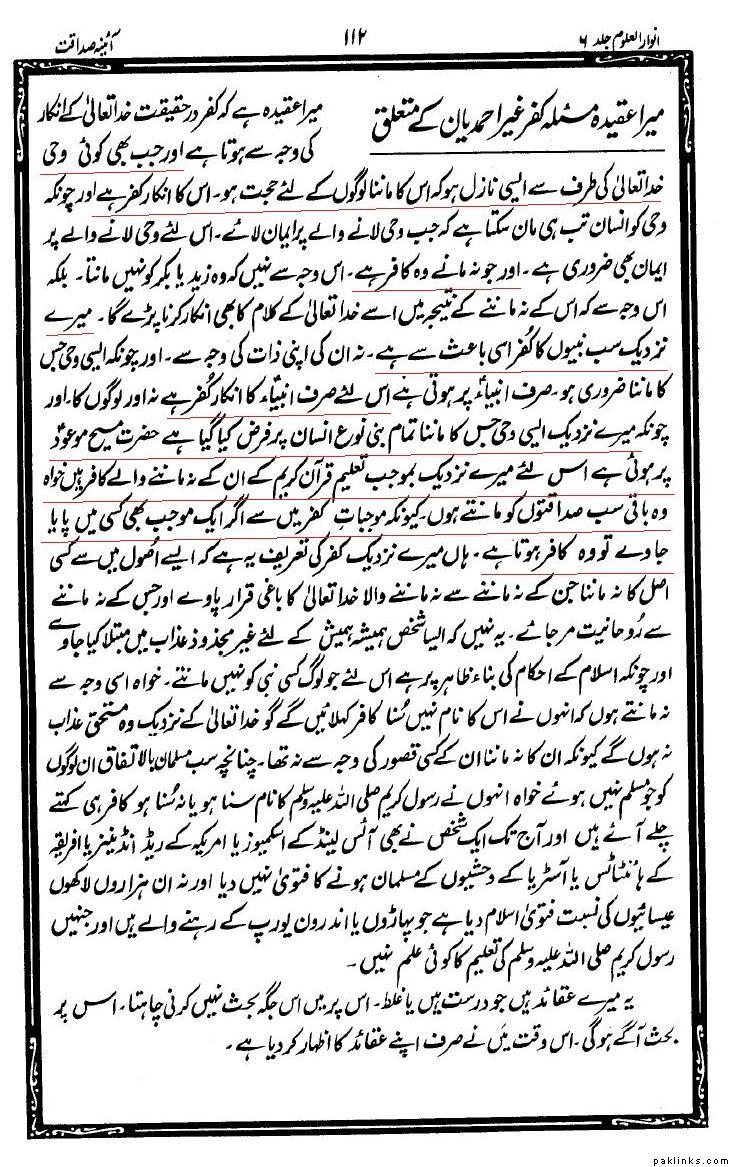 انوار العلوم جلد ۶
۱۱۲
آئینہ صداقت
میرا عقیدہ مسئلہ کفر غیر احمدیان کے متعلق
میرا عقیدہ ہے کہ کفر در حقیقت خدا تعالیٰ کے انکار
کی وجہ سے ہوتا ہے اور جب بھی کوئی وحی
خدا تعالیٰ کی طرف سے ایسی نازل ہو کہ اس کا ماننا لوگوں کے لئے حجت ہو۔ اس کا انکار کفر ہے اور چونکہ
وحی کو انسان تب ہی مان سکتا ہے کہ جب وحی لانے والے پر ایمان لائے۔ اس لئے وحی لانے والے پر
ایمان بھی ضروری ہے۔ اور جو نہ مانے وہ کافر ہے۔ اس وجہ سے نہیں کہ وہ زید یا بکر کو نہیں مانتا۔ بلکہ
اس وجہ سے کہ اس کے نہ ماننے کے نتیجہ میں اسے خدا تعالیٰ کے کلام کا بھی انکار کرنا پڑے گا۔ میرے
نزدیک سب نبیوں کا کفر اسی باعث سے ہے۔ نہ ان کی اپنی ذات کی وجہ سے۔ اور چونکہ ایسی وحی جس
کا ماننا ضروری ہو۔ صرف انبیاءؑ پر ہوتی ہے اس لئے صرف انبیاء کا انکار کُفر ہے نہ اور لوگوں کا، اور
چونکہ میرے نزدیک ایسی وحی جس کا ماننا تمام بنی نوع انسان پر فرض کیا گیا ہے حضرت مسیح موعودؑ
پر ہوئی ہے اس لئے میرے نزدیک بموجب تعلیم قرآن کریم کے ان کے نہ ماننے والے کافر ہیں خواہ
وہ باقی سب صداقتوں کو مانتے ہوں۔ کیونکہ موجبات کفر میں سے اگر ایک موجب بھی کسی میں پایا
جاوے تو وہ کافر ہوتا ہے۔ ہاں میرے نزدیک کفر کی تعریف یہ ہے کہ ایسے اُصول میں سے کسی
اصل کا نہ ماننا جن کے نہ ماننے سے نہ ماننے والا خدا تعالیٰ کا باغی قرار پاوے اور جس کے نہ ماننے
سے رُوحانیت مر جائے۔ یہ نہیں کہ ایسا شخص ہمیشہ ہمیش کے لئے غیر مجذوذ عذاب میں مبتلا کیا جاوے
اور چونکہ اسلام کے احکام کی بناء ظاہر پر ہے اس لئے جو لوگ کسی نبی کو نہیں مانتے۔ خواہ اسی وجہ سے
نہ مانتے ہوں کہ انہوں نے اس کا نام نہیں سُنا کافر کہلائیں گے گو خدا تعالیٰ کے نزدیک وہ مستحق عذاب
نہ ہوں گے کیونکہ ان کا نہ ماننا ان کے کسی قصور کی وجہ سے نہ تھا۔ چنانچہ سب مسلمان بالاتفاق ان لوگوں
کو جو مُسلم نہیں ہوئے خواہ انہوں نے رسول کریم صلی اللہ علیہ وسلم کا نام سنا ہو یا نہ سُنا ہو کافر ہی کہتے
چلے آئے ہیں اور آج تک ایک شخص نے بھی آئس لینڈ کے اسکیموز یا امریکہ کے ریڈ انڈینز یا افریقہ
کے ہاٹنٹاٹس یا آسٹریا کے وحشیوں کے مسلمان ہونے کا فتویٰ نہیں دیا اور نہ ان ہزاروں لاکھوں
عیسائیوں کی نسبت فتویٰ اسلام دیا ہے جو پہاڑوں یا اندرون یورپ کے رہنے والے ہیں اور جنہیں
رسول کریم صلی اللہ علیہ وسلم کی تعلیم کا کوئی علم نہیں۔
یہ میرے عقائد ہیں جو درست ہیں یا غلط۔ اس پر میں اس جگہ بحث نہیں کرنی چاہتا۔ اس پر
بحث آگے ہوگی۔ اس وقت میں نے صرف اپنے عقائد کا اظہار کر دیا ہے۔
paklinks.com